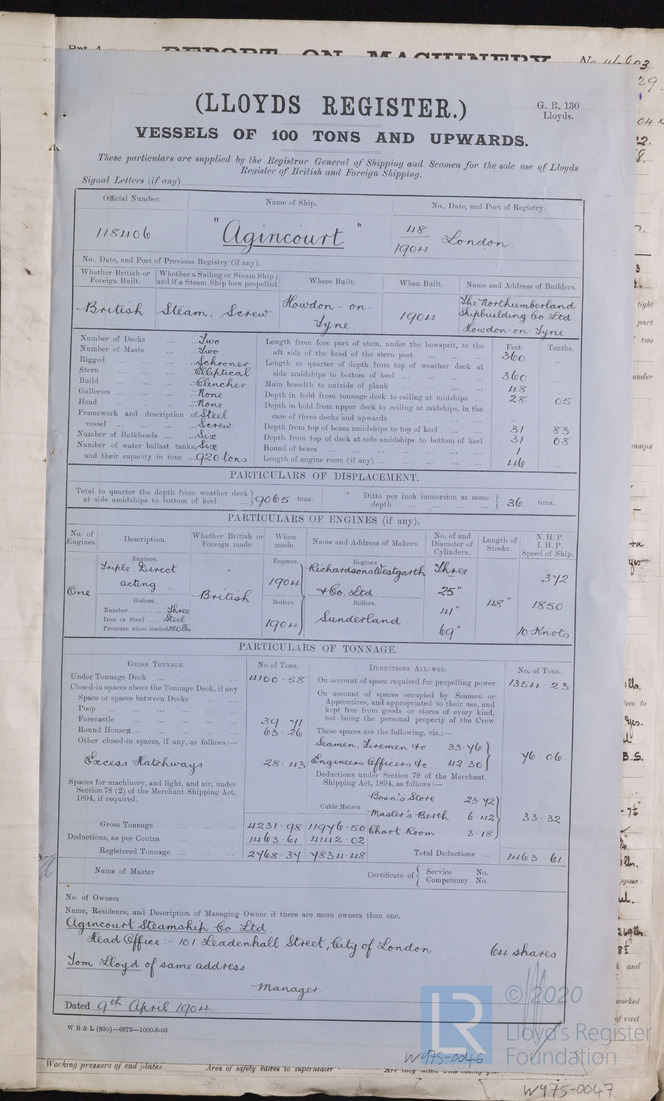 REPORT ON MACHINERY No. 46603
(LLOYDS REGISTER.)
G. R. 130
Lloyds.
VESSELS OF 100 TONS AND UPWARDS.
These particulars are supplied by the Registrar General of Shipping and Seamen for the sole use of Lloyds
Register of British and Foreign Shipping.
Signal Letters (if any)
Official Number. Name of Ship. No., Date, and Port of Registry.
118406 "Agincourt" 48 1904 London
No., Date, and Port of Previous Registry (if any).
Whether British or Foreign Built. Whether a Sailing or Steam Ship; and if a Steam Ship how propelled. Where Built. When Built. Name and Address of Builders.
British Steam. Screw Howdon-on-Tyne 1904 The Northumberland Shipbuilding Co Ltd Howdon-on-Tyne
Feet. Tenths.
Number of Decks ... Two
Number of Masts ... Two
Rigged ... Schooner
Stern ... Elliptical
Build ... Clincher
Galleries ... None
Head ... None
Framework and description of vessel ... Steel Screw
Number of Bulkheads ... Six
Number of water ballast tanks, and their capacity in tons Six 920 tons
Length from fore part of stem, under the bowsprit, to the aft side of the head of the stern post ... 360
Length at quarter of depth from top of weather deck at side amidships to bottom of keel ... 360
Main breadth to outside of plank ... 48
Depth in hold from tonnage deck to ceiling at midships ... 28 05
Depth in hold from upper deck to ceiling at midships, in the case of three decks and upwards
Depth from top of beam amidships to top of keel ... 31 83
Depth from top of deck at side amidships to bottom of keel 31 08
Round of beam ... 1
Length of engine room (if any) ... 46
PARTICULARS OF DISPLACEMENT.
Total to quarter the depth from weather deck at side amidships to bottom of keel } 9065 tons. Ditto per inch immersion at same depth } 36 tons.
PARTICULARS OF ENGINES (if any).
No. of Engines. Description. Whether British or Foreign made. When made. Name and Address of Makers. No. of and Diameter of Cylinders. Length of Stroke. N.H.P. I.H.P. Speed of Ship.
Engines. Engines. Engines.
One Triple Direct acting British 1904 Richardsons Westgarth & Co. Ltd Three 25" 41" 69" 48" 372
Boilers. Boilers Boilers. 1850
Number ... Three 1904 Sunderland
Iron or Steel ... Steel
Pressure when loaded 180 lbs 10 Knots
PARTICULARS OF TONNAGE.
GROSS TONNAGE. No. of Tons. DEDUCTIONS ALLOWED. No. of Tons.
Under Tonnage Deck ... 4100.58
Closed-in spaces above the Tonnage Deck, if any
Space or spaces between Decks
Poop
Forecastle ... 39.71
Round House s ... 63.26
Other closed-in spaces, if any, as follows:—
Excess Hatchways 28.43
Spaces for machinery, and light, and air, under
Section 78 (2) of the Merchant Shipping Act,
1894, if required.
Cubic Metres
Gross Tonnage 4231.98 11976.50
Deductions, as per Contra 1463.61 4142.02
Registered Tonnage 2768.37 7834.48
On account of space required for propelling power 1354.23
On account of spaces occupied by Seamen or
Apprentices, and appropriated to their use, and
kept free from goods or stores of every kind,
not being the personal property of the Crew
These spaces are the following, viz.:—
Seamen, Firemen &c 33.76
Engineers Officers &c 42.30 } 76 06
Deductions under Section 79 of the Merchant
Shipping Act, 1894, as follows:—
Bosn's Store 23.72
Master's Berth 6.42
Chart Room 3.18 } 33.32
Total Deductions ... 1463.61
Name of Master Certificate of { Service No. Competency No.
No. of Owners
Name, Residence, and Description of Managing Owner if there are more owners than one.
Agincourt Steamship Co. Ltd.
Head Office:- 101 Leadenhall Street, City of London 64 shares
Tom Lloyd of same address
Manager.
Dated 9th April 1904.
W B & L (83c)—6673—1000-6-03
© 2020
LR Lloyd's Register
Foundation
W975-0046
Working pressure of end plates Area of safety valves to superheater
W975-0047